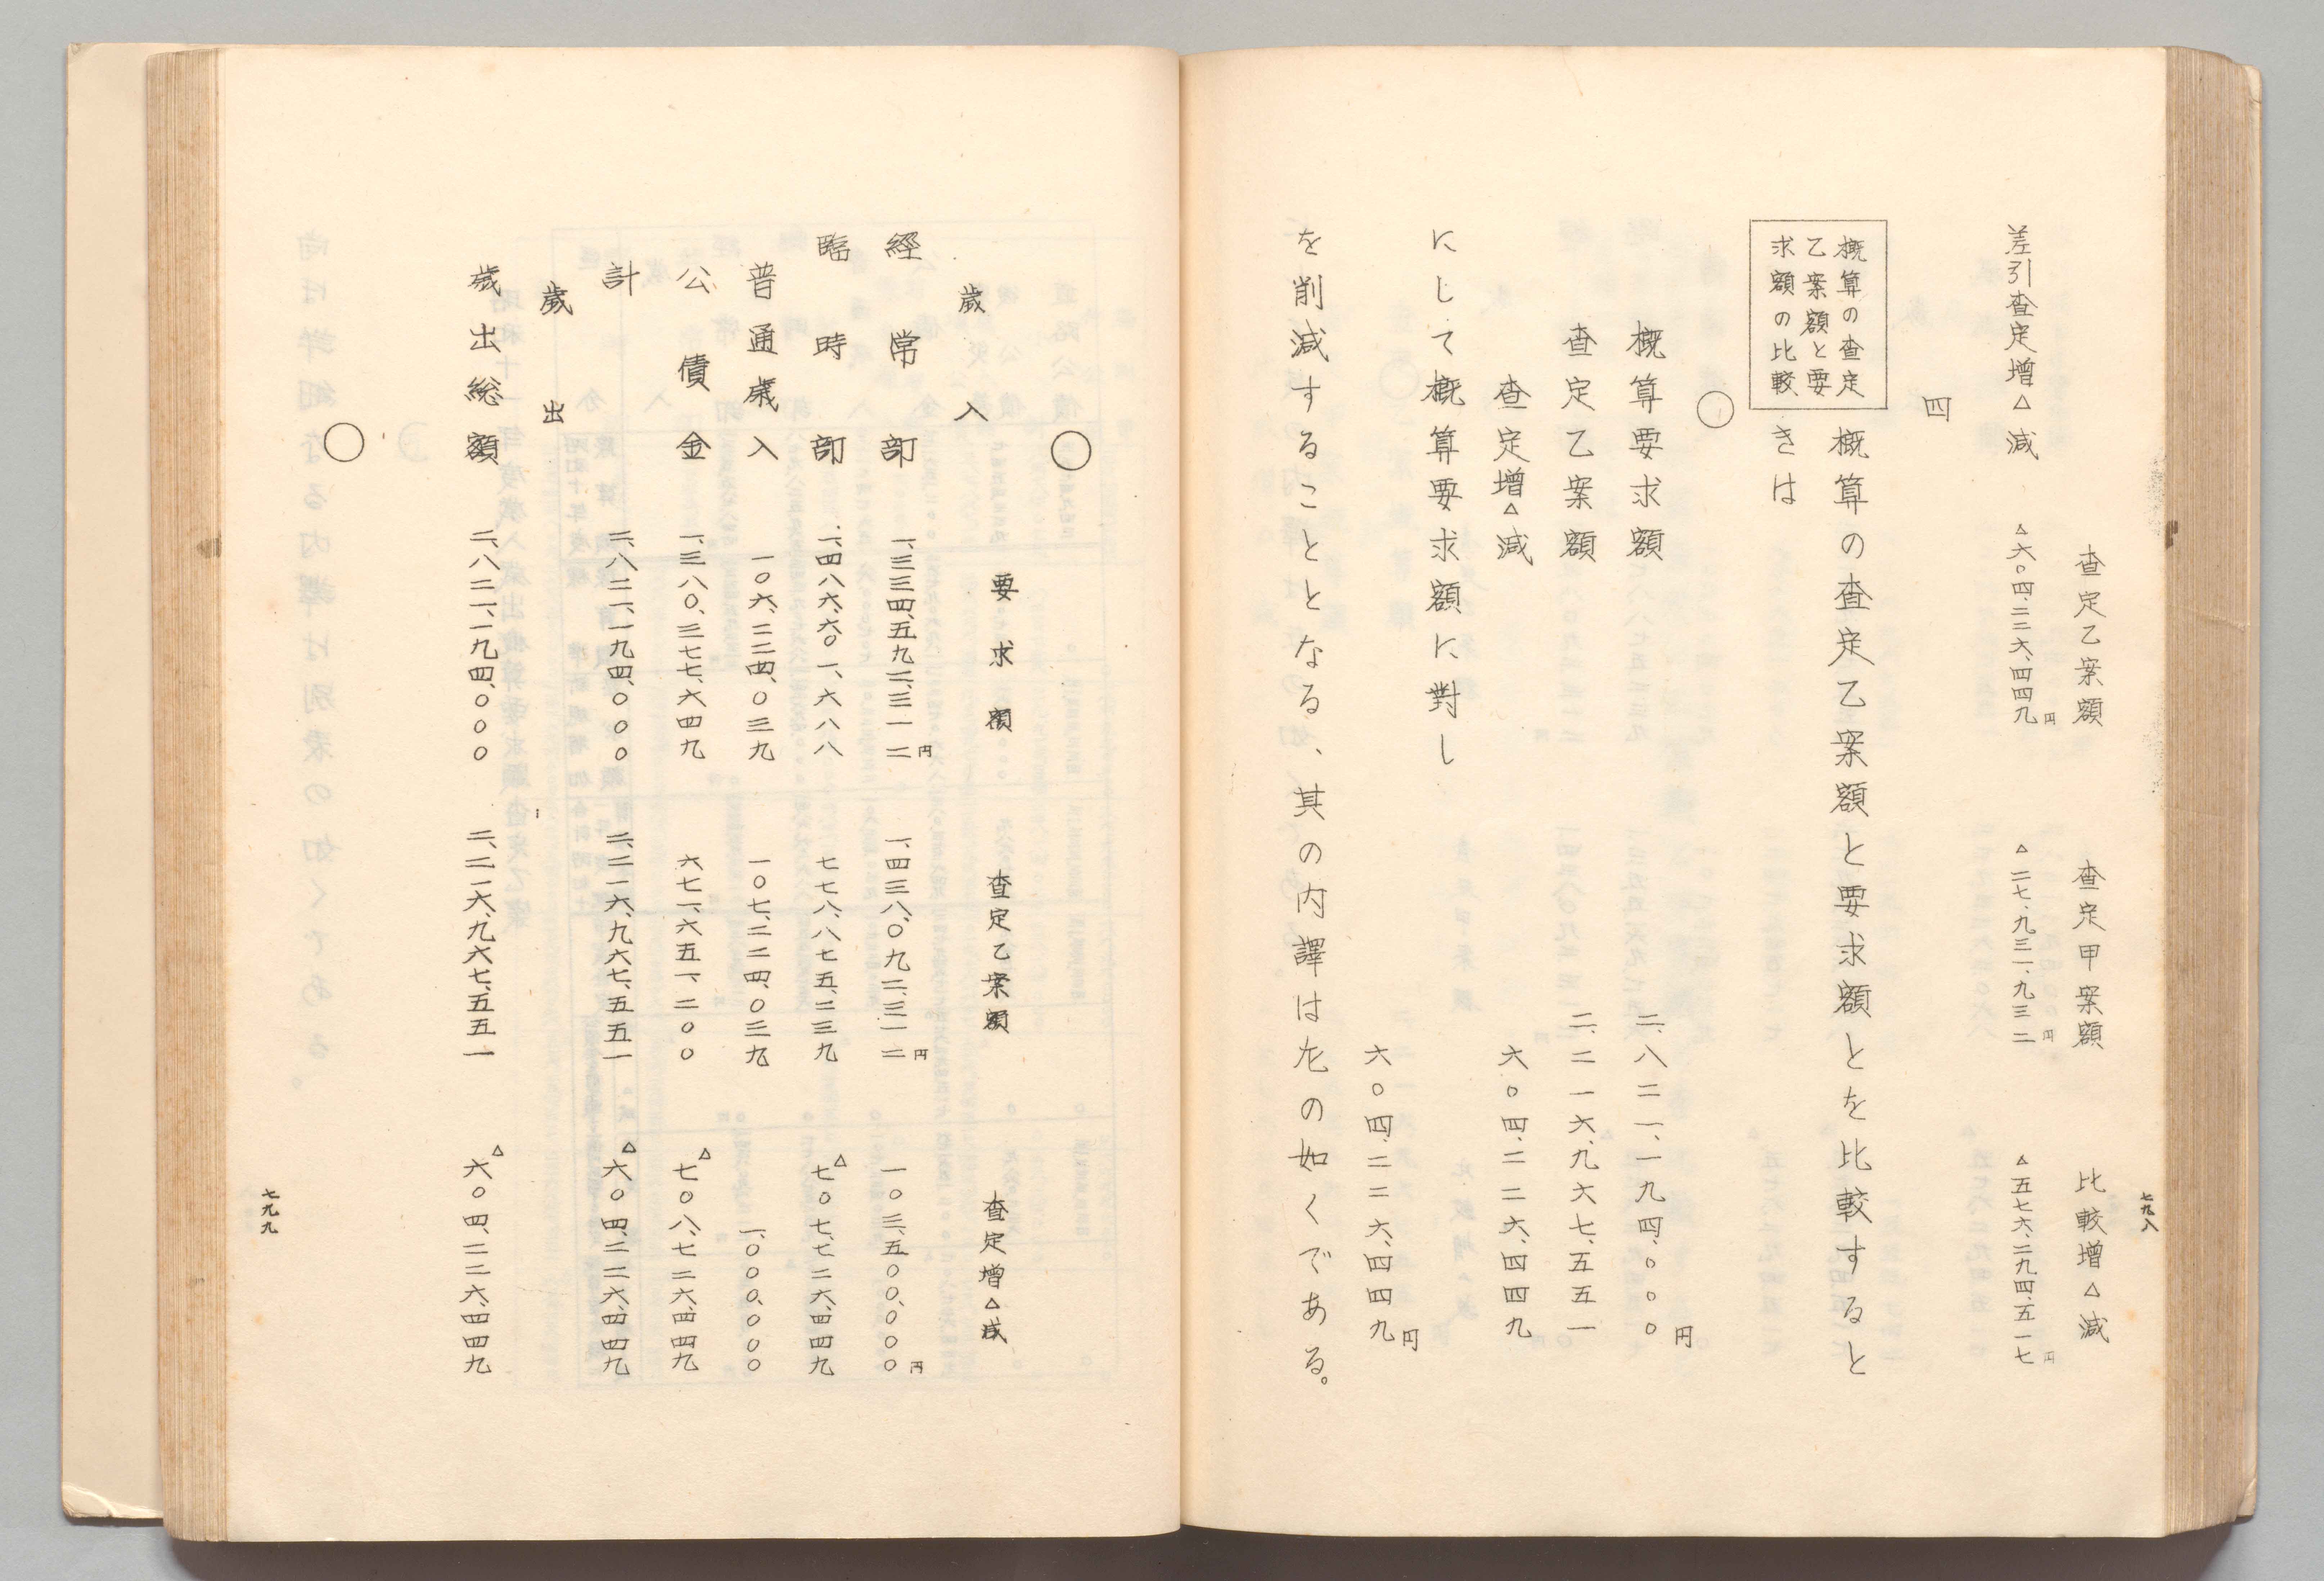 七九八
査定乙案額　査定甲案額　比較増△減
差引査定増△減　△六〇四、二二六、四四九円　△二七、九三一、九三二円　△五七六、二九四、五一七円
四
概算の査定
乙案額と要
求額の比較
概算の査定乙案額と要求額とを比較すると
きは
○
概算要求額　二、八二一、一九四、〇〇〇円
査定乙案額　二、二一六、九六七、五五一
査定増△減　六〇四、二二六、四四九
にして概算要求額に對し
六〇四、二二六、四四九円
を削減することとなる、其の内譯は左の如くである。
○
要求額　査定乙案額　査定増△減
歲入
經常部　一、三三四、五九二、三一二円　一、四三八、〇九二、三一二円　一〇三、五〇〇、〇〇〇円
臨時部　一、四八六、六〇一、六八八　七七八、八七五、二三九　△七〇七、七二六、四四九
普通歳入　一〇六、二二四、〇三九　一〇七、二二四、〇三九　一、〇〇〇、〇〇〇
公債金　一、三八〇、三七七、六四九　六七一、六五一、二〇〇　△七〇八、七二六、四四九
計　二、八二一、一九四、〇〇〇　二、二一六、九六七、五五一　△六〇四、二二六、四四九
歲出
歳出総額　二、八二一、一九四、〇〇〇　二、二一六、九六七、五五一　△六〇四、二二六、四四九
○
七九九